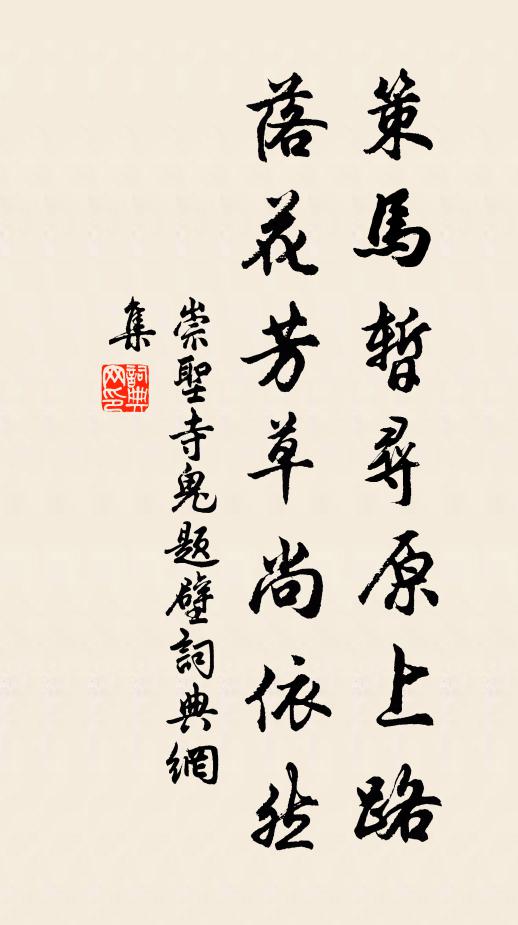 策馬暫尋原上路
落花芳草尚依然
崇聖寺鬼題壁詞典網
集
詞典
网印